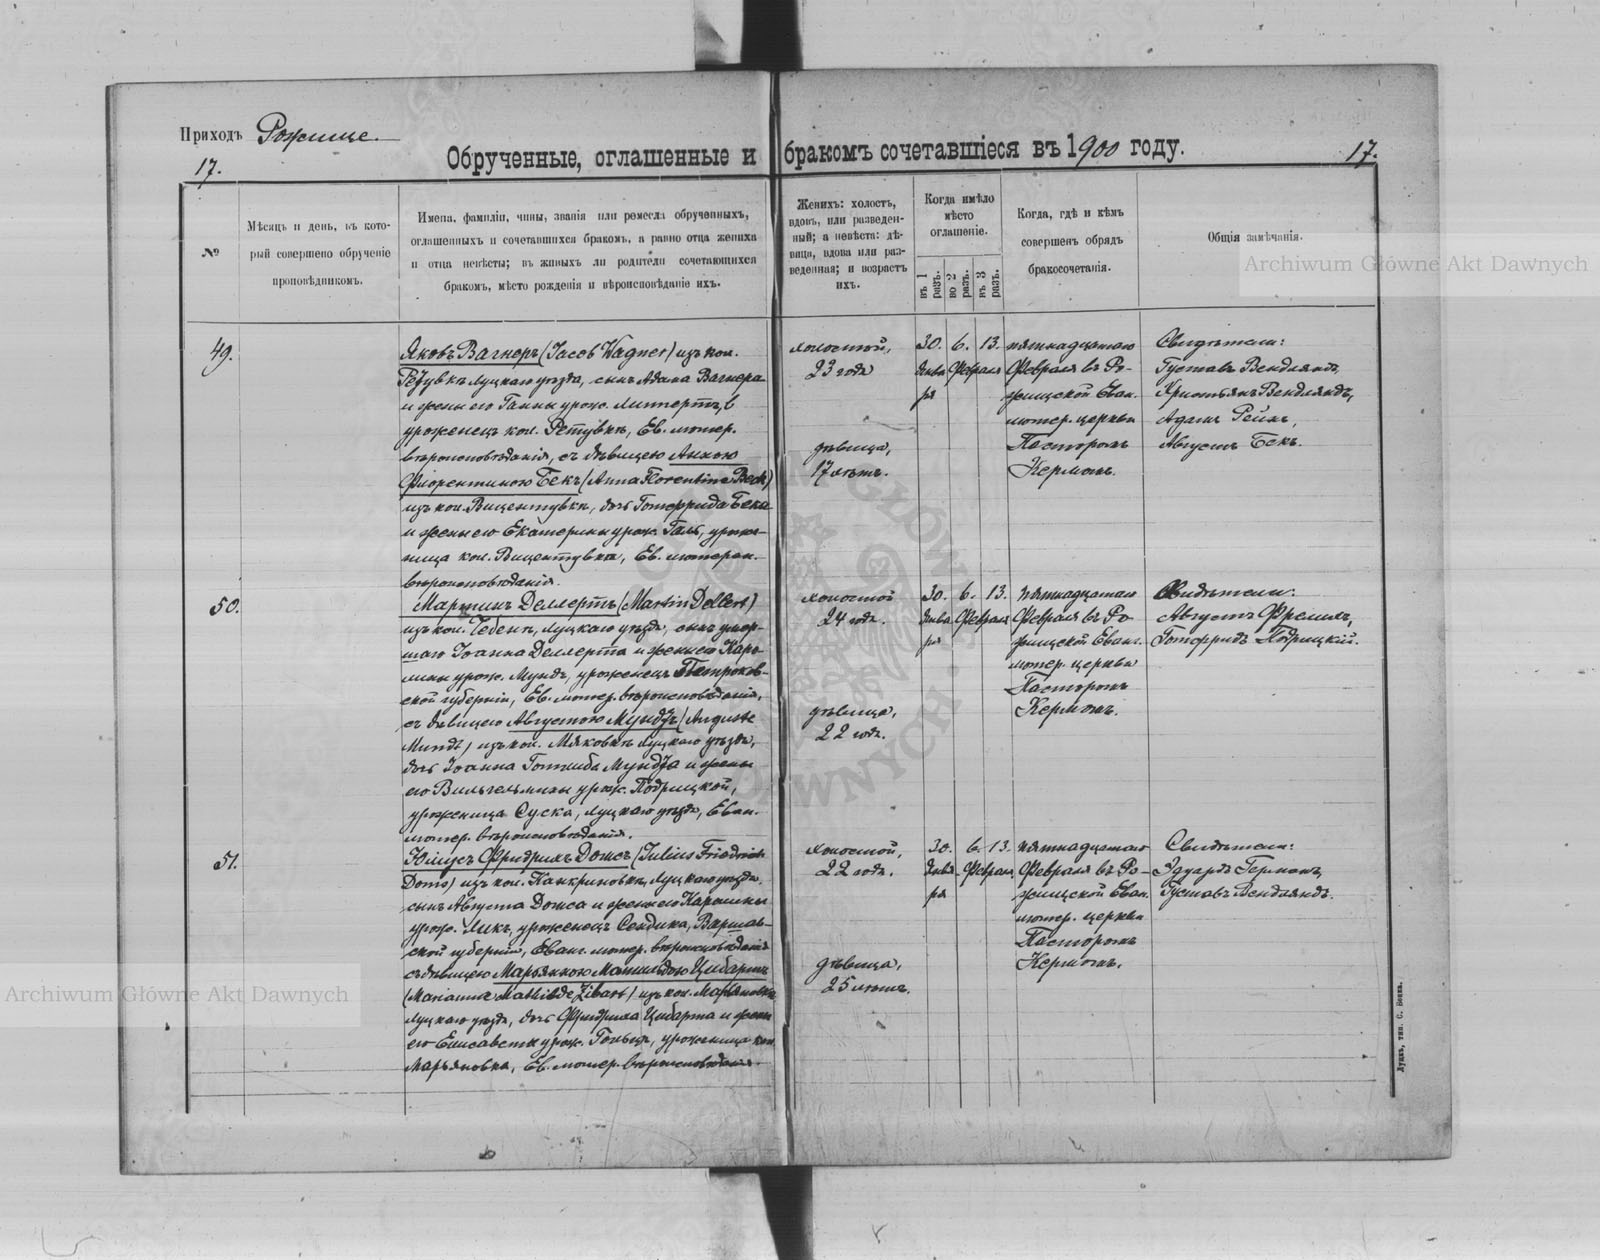 Приходъ Рожище.
17.
Обрученные, оглашенные и бракомъ сочетавшіеся въ 1900 году.
17.
№
Мѣсяцъ и день, въ кото-
рый совершено обрученіе
проповѣдникомъ.
Имена, фамиліи, чины, званія или ремесла обрученныхъ,
оглашенныхъ и сочетавшихся бракомъ, а равно отца жениха
и отца невѣсты; въ живыхъ ли родители сочетающихся
бракомъ, мѣсто рожденія и вѣроисповѣданіе ихъ.
Женихъ: холостъ,
вдовъ, или разведен-
ный; а невѣста: дѣ-
вица, вдова или раз-
веденная; и возрастъ
ихъ.
Когда имѣло
мѣсто
оглашеніе.
въ 1
разъ.
во 2
разъ.
въ 3
разъ.
Когда, гдѣ и кѣмъ
совершенъ обрядъ
бракосочетанія.
Общія замѣчанія.
Archiwum Główne Akt Dawnych
49.
Яковъ Вагнеръ (Jacob Wagner) изъ кол.
Луцкаго уѣзда, сынъ Адама Вагнера
и жены его Ганны урож. Липпертъ,
уроженецъ кол. Ев. лютер.
вѣроисповѣданія, съ дѣвицею Анною
Флорентиною Бекъ (Anna Florentina Beck)
изъ кол. Вицентувки, дочь Готфрида Бека
и жены его Екатерины урож. Галь, уроже-
ница кол. Вицентувки, Ев. лютеран.
вѣроисповѣданія.
холостой,
23 года
дѣвица,
17 лѣтъ.
30. 6. 13.
Янва Февраля
ря
пятнадцатаго
Февраля въ Ро-
жищской Еван.
лютер. церкви
Пасторомъ
Кермомъ.
Свидѣтели:
Густавъ Вендляндъ,
Христьянъ Вендляндъ,
Адамъ Рейхъ,
Августъ Бекъ.
50.
Мартинъ Деллертъ (Martin Dellert)
изъ кол. Чебени, Луцкаго уѣзда, сынъ умер-
шаго Іоанна Деллерта и жены его Каро-
лины урож. Мундъ, уроженецъ Петроков-
ской губерніи, Ев. лютер. вѣроисповѣданія,
съ дѣвицею Августою Мундъ (Auguste
Mundt) изъ кол. Луцкаго уѣзда,
дочь Іоанна Готлиба Мунда и жены
его Вильгельмины урож. Подрицкой,
уроженица Суска, Луцкаго уѣзда, Еван.
лютер. вѣроисповѣданія.
холостой
24 года.
дѣвица,
22 года.
30. 6. 13.
Янва Февраля
ря
пятнадцатаго
Февраля въ Ро
жищской Еванг.
лютер. церкви
Пасторомъ
Кермомъ.
Свидѣтели:
Августъ
Готфридъ Подрицкій.
51.
Юліусъ Фридрихъ Домсъ (Julius Friedrich
Doms) изъ кол. Канкриновки, Луцкаго уѣзда.
сынъ Августа Домса и жены его Каролины
урож. Ликъ, уроженецъ Сендика, Варшав-
ской губерніи, Еванг. лютер. вѣроисповѣданія
съ дѣвицею Марьянною Матильдою Цибартъ
(Marianne Mathilde Zibart) изъ кол. Марьяновки
Луцкаго уѣзда, дочь Фридриха Цибарта и жены
его Елисаветы урож. Гольцъ, уроженица кол.
Марьяновки, Ев. лютер. вѣроисповѣданія.
холостой,
22 года.
дѣвица,
25 лѣтъ.
30. 6. 13.
Янва Февраля
ря
пятнадцатаго
Февраля въ Ро-
жищской Еван.
лютер. церкви
Пасторомъ
Кермомъ.
Свидѣтели:
Эдуардъ Германъ,
Густавъ Вендляндъ.
Archiwum Główne Akt Dawnych
Луцкъ, тип. С. Бокка.